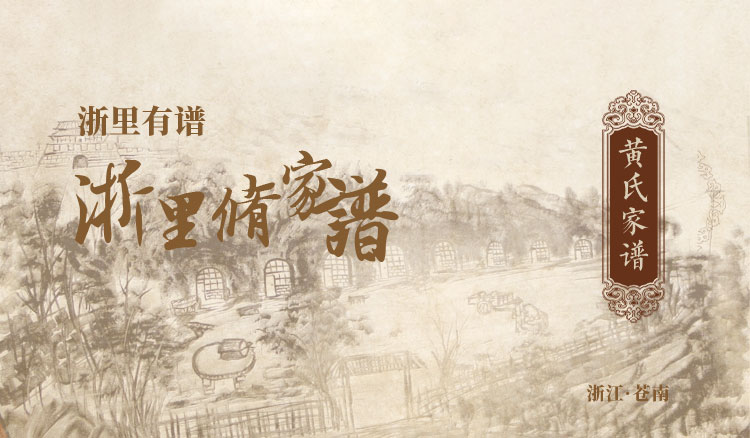 浙里有谱
浙里脩家譜
黄氏家谱
浙江·苍南